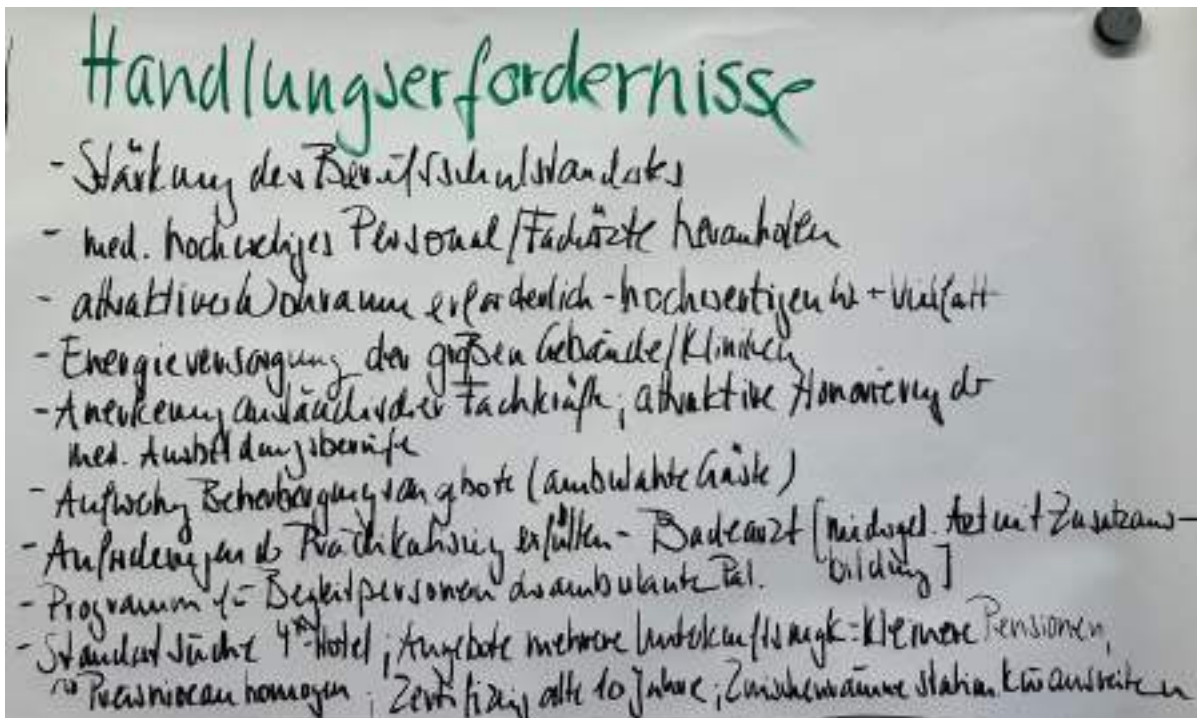 Handlungserfordernisse
- Stärkung des Berufsschulstandorts
- med. hochwertiges Personal / Fachärzte heranholen
- attraktiver Wohnraum erforderlich - hochwertigen + Vielfalt
- Energieversorgung der großen Gebäude / Kliniken
- Anerkennung ausländischer Fachkräfte, attraktive Honorierung der
med. Ausbildungsberufe
- Aufwertung Beherbergungsangebote (ambulante Gäste)
- Anforderungen der Prädikatisierung erfüllen - Badearzt [niedergel. Arzt mit Zusatzaus-
bildung]
- Programm für Begleitpersonen der ambulante Pat.
- Standortsuche 4* Hotel; Angebote mehrere Unterkunftsmgk = kleinere Pensionen,
Preisniveau homogen; Zertifizierg alle 10 Jahre; Zwischenräume